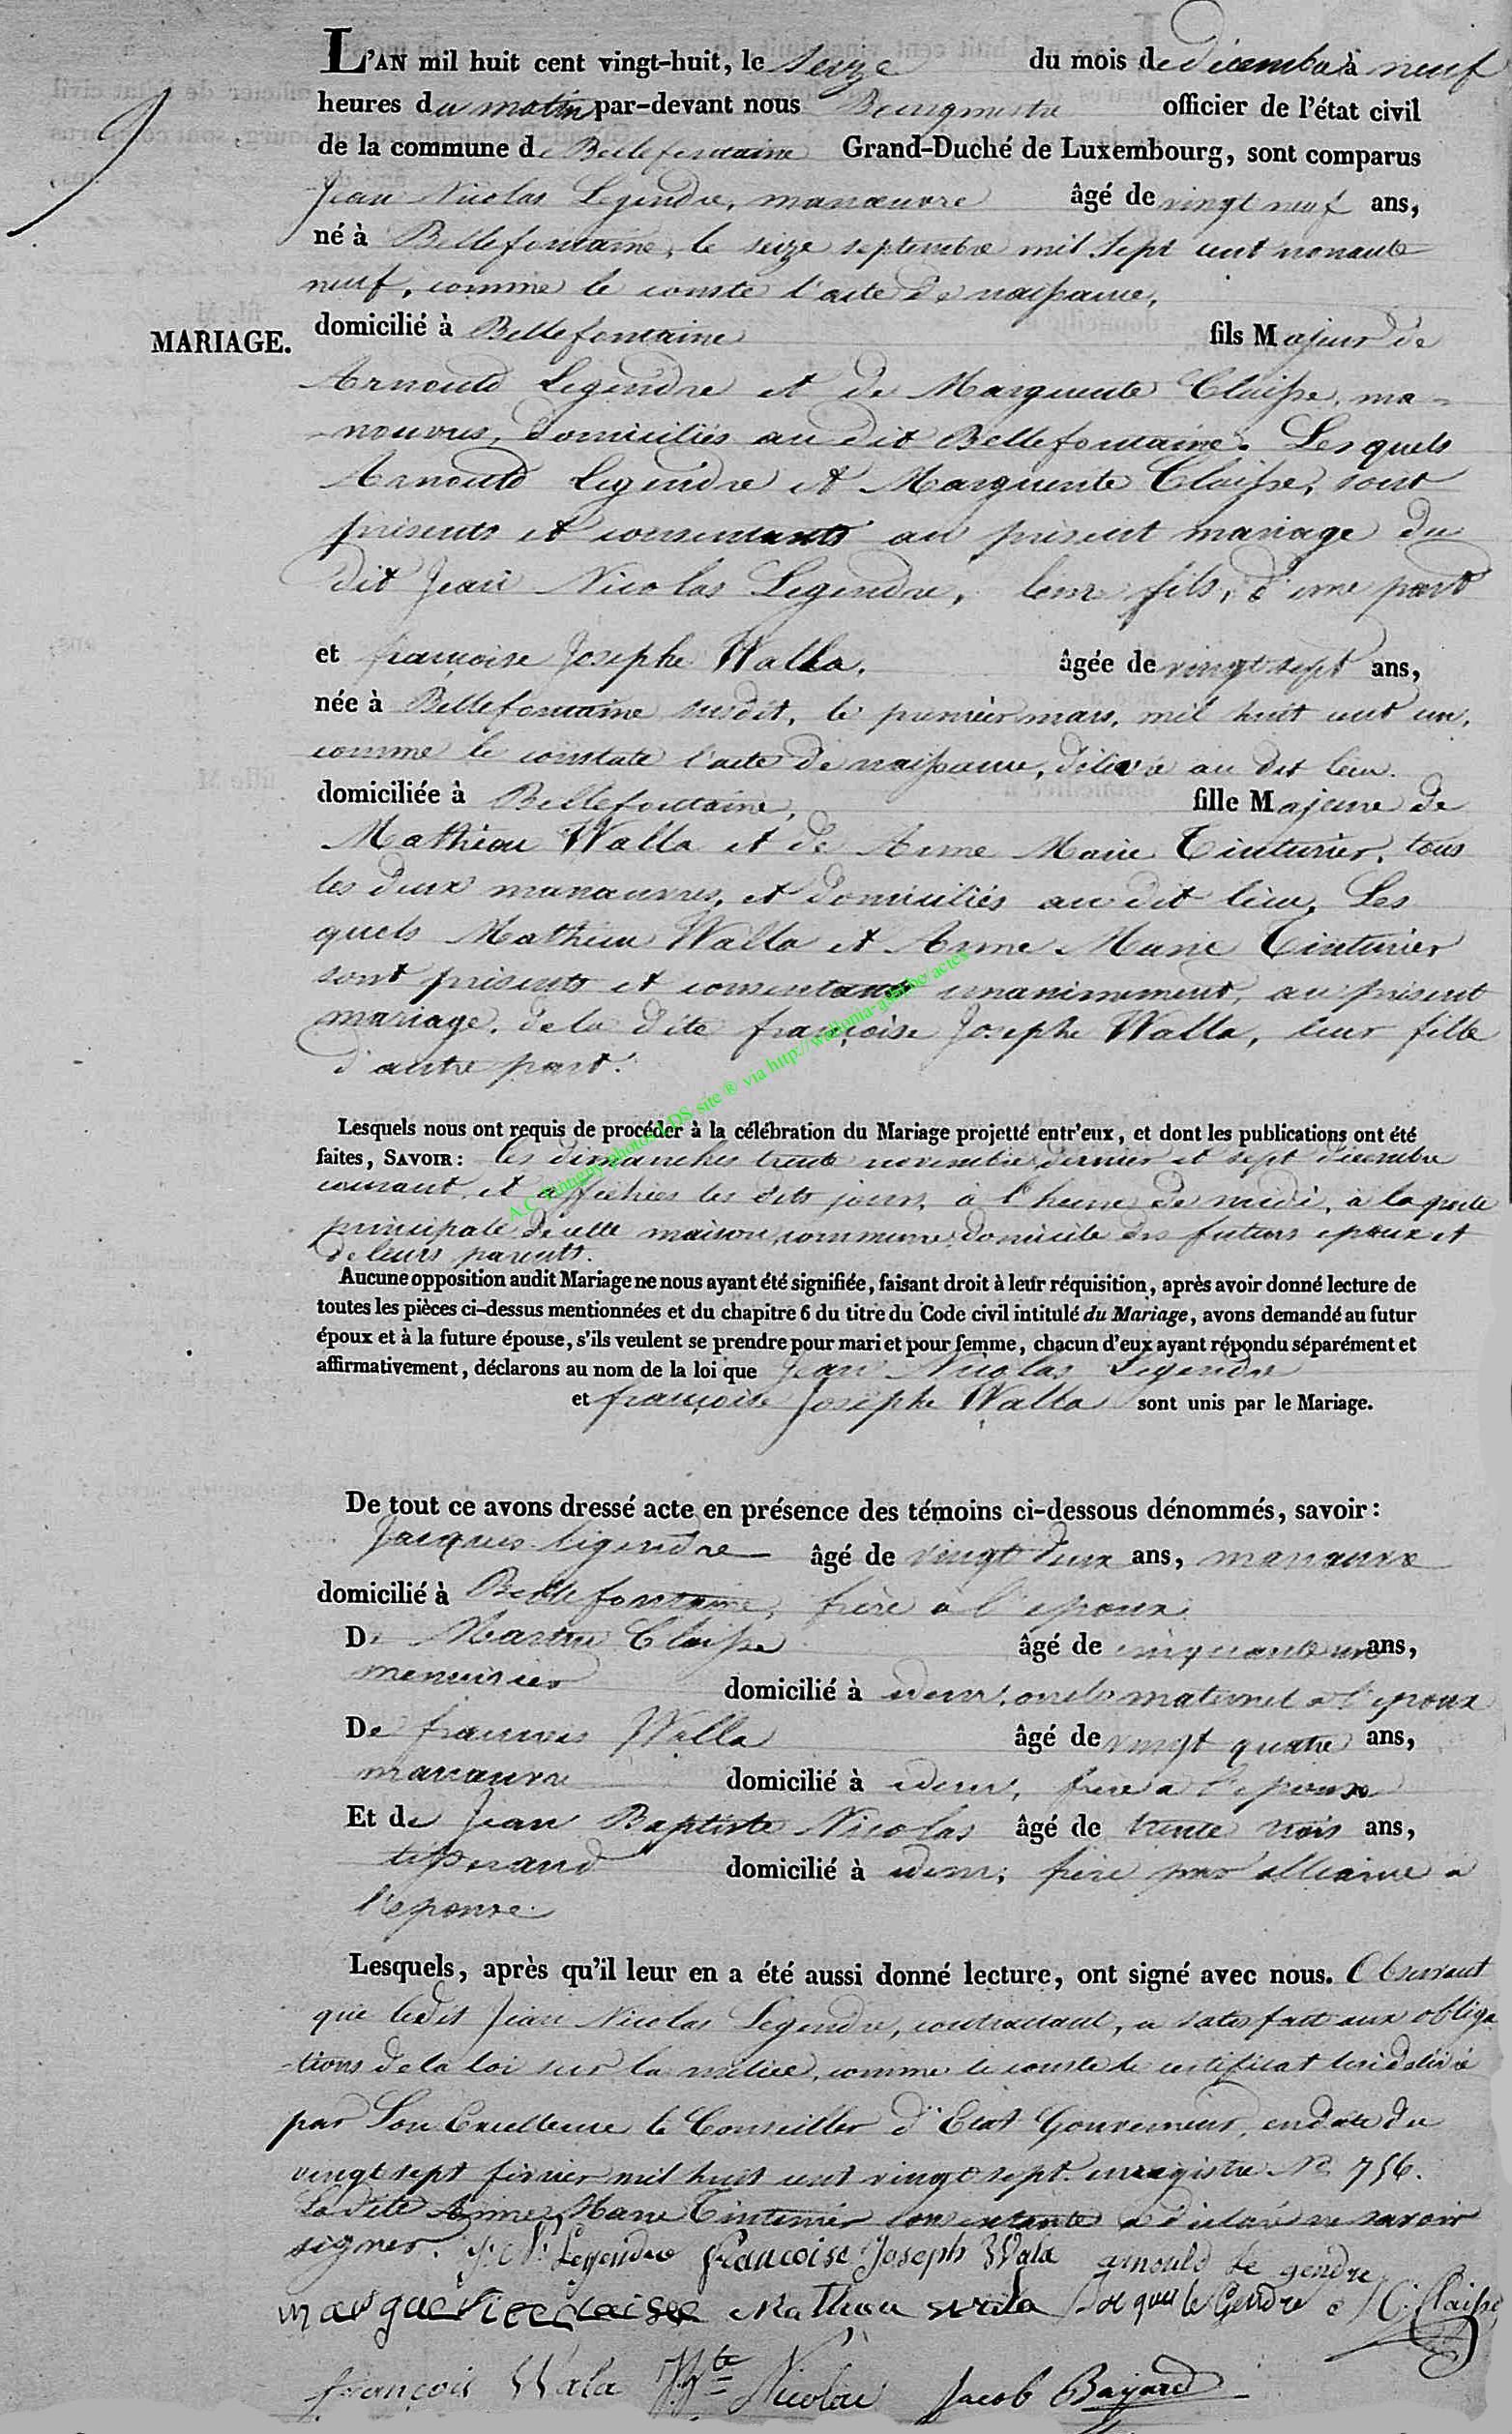 L'AN mil huit cent vingt-huit, le seize du mois de décembre à neuf
heures du matin par-devant nous Bourgmestre officier de l'état civil
de la commune de Bellefontaine Grand-Duché de Luxembourg, sont comparus
Jean Nicolas Legendre, manœuvre âgé de vingt neuf ans,
né à Bellefontaine, le seize septembre mil sept cent nonante
neuf, comme le conste l'acte de naissance,
MARIAGE.
domicilié à Bellefontaine fils Majeur de
Arnould Legendre et de Marguerite Claisse, ma-
nouvres, domiciliés au dit Bellefontaine. Les quels
Arnould Legendre et Marguerite Claisse, sont
présents et consentants au présent mariage du
dit Jean Nicolas Legendre, leur fils, d'une part
et françoise Josephe Walla, âgée de vingt sept ans,
née à Bellefontaine susdit, le premier mars, mil huit cent un,
comme le constate l'acte de naissance, délivré au dit lieu.
domiciliée à Bellefontaine, fille Majeure de
Mathieu Walla et de Anne Marie Tinturier, tous
les deux manœuvres, et domiciliés au dit lieu. Les
quels Mathieu Walla et Anne Marie Tinturier
sont présents et consentants unanimement, au présent
mariage, de la dite françoise Josephe Walla, leur fille
d'autre part.
A.C. Tintigny photos LDS site ® via http://wallonia-asbl.be/actes
Lesquels nous ont requis de procéder à la célébration du Mariage projetté entr'eux, et dont les publications ont été
faites, SAVOIR: les dimanches trente novembre dernier et sept décembre
courant, et affichées les dits jours, à l'heure de midi, à la porte
principale de cette maison commune domicile des futurs epoux et
de leurs parents.
Aucune opposition audit Mariage ne nous ayant été signifiée, faisant droit à leur réquisition, après avoir donné lecture de
toutes les pièces ci-dessus mentionnées et du chapitre 6 du titre du Code civil intitulé du Mariage, avons demandé au futur
époux et à la future épouse, s'ils veulent se prendre pour mari et pour femme, chacun d'eux ayant répondu séparément et
affirmativement, déclarons au nom de la loi que Jean Nicolas Legendre
et françoise Josephe Walla sont unis par le Mariage.
De tout ce avons dressé acte en présence des témoins ci-dessous dénommés, savoir:
Jacques Legendre âgé de vingt deux ans, manœuvre
domicilié à Bellefontaine, frère à l'epoux
De Martin Claisse âgé de cinquante un ans,
menuisier domicilié à idem, oncle maternel à l'epoux
De francois Walla âgé de vingt quatre ans,
manœuvre domicilié à idem, frère a l'epouse
Et de Jean Baptiste Nicolas âgé de trente trois ans,
tisserand domicilié à idem, frère par alliance à
l'epouse.
Lesquels, après qu'il leur en a été aussi donné lecture, ont signé avec nous. Observant
que ledit Jean Nicolas Legendre, contractant, a satisfait aux obliga
-tions de la loi sur la milice, comme le conste le certificat lui délivré
par Son Excellence le Conseiller d'Etat Gouverneur, en date du
vingt sept février mil huit cent vingt sept. enregistré No 756.
La dite Anne Marie Tinturier consentante a déclaré ne savoir
signer. J. N. Legendre francoise Joseph Wala arnould le gendre
marguerite claise Mathieu wala Jacques le Gendre M. Claisse
françois Wala J. Bte Nicolas Jacob Bayard